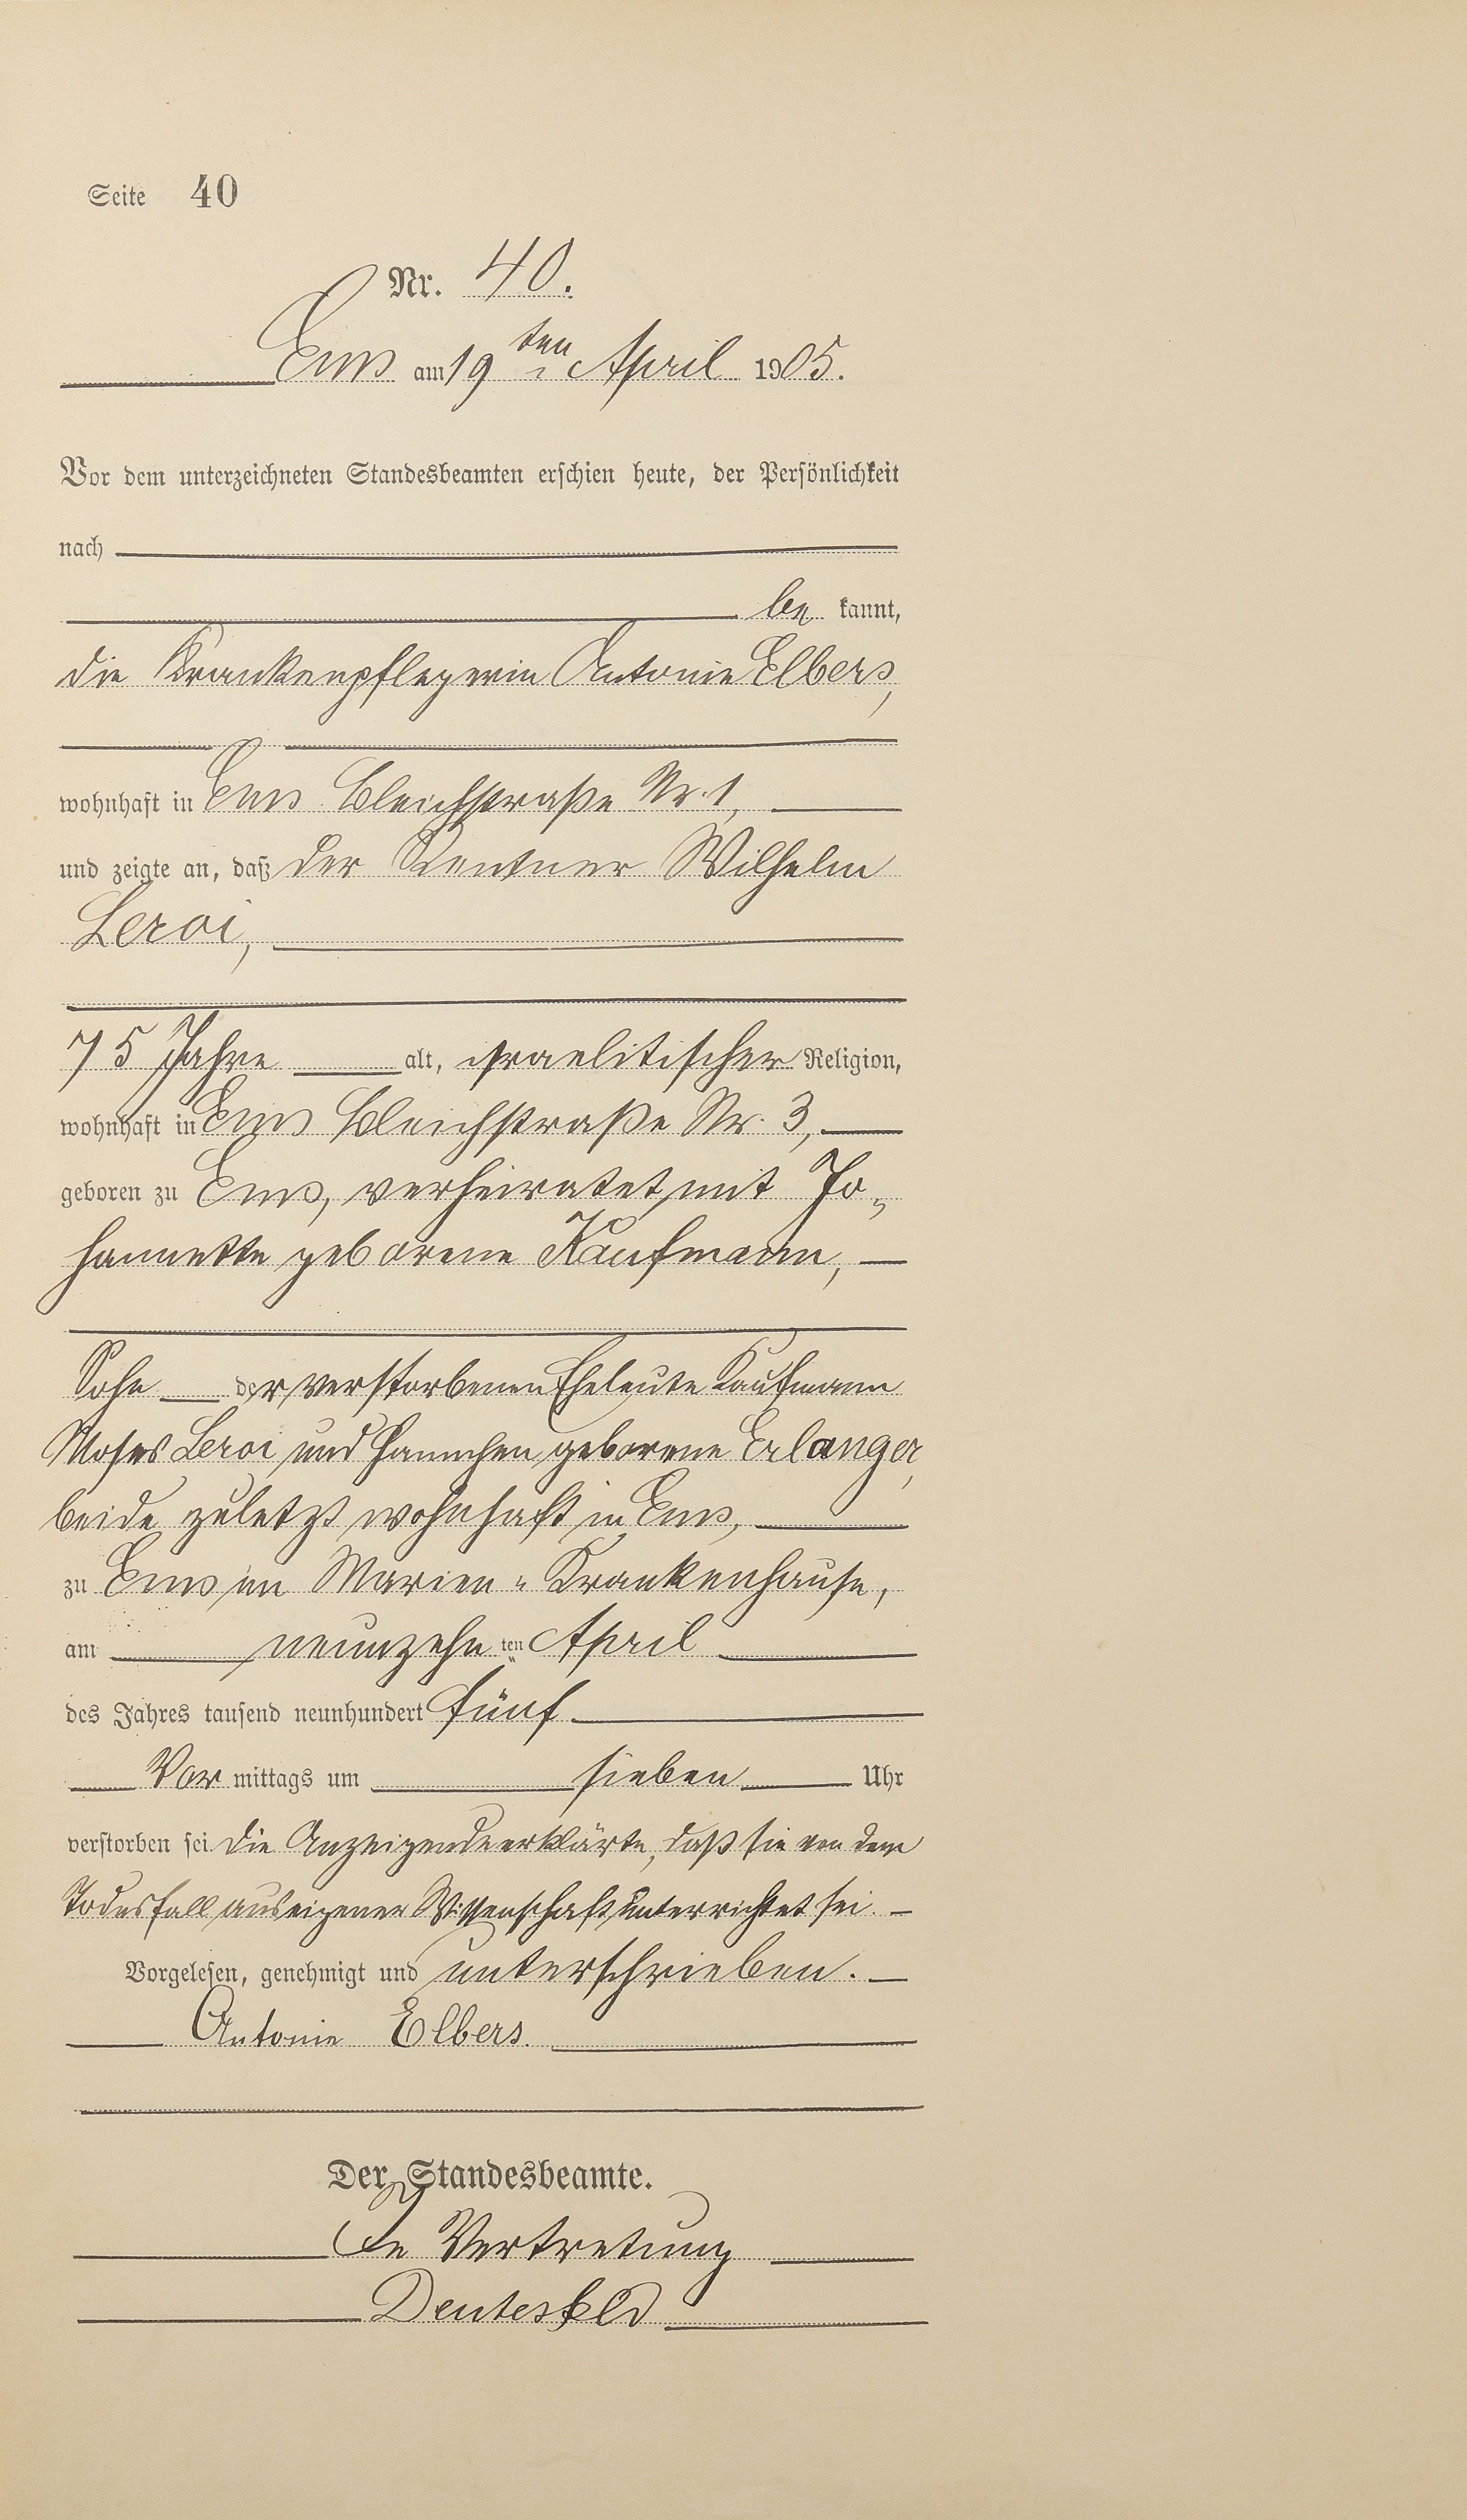 Seite 40
Nr. 40.
Ems am 19ten April 1905.
Vor dem unterzeichneten Standesbeamten erschien heute, der Persönlichkeit
nach
be kannt,
die Krankenpflegerin Antonie Elbers,
wohnhaft in Ems Bleichstraße Nr. 1,
und zeigte an, daß der Rentner Wilhelm
Leroi,
75 Jahre alt, israelitischer Religion,
wohnhaft in Ems Bleichstraße Nr. 3,
geboren zu Ems, verheiratet mit Jo-
hannette geborene Kaufmann,
Sohn der verstorbenen Eheleute Kaufmann
Moses Leroi und Hannchen geborene Erlanger,
beide zuletzt wohnhaft in Ems,
zu Ems im Marien-Krankenhause,
am neunzehnten April
des Jahres tausend neunhundert fünf
Vor mittags um sieben Uhr
verstorben sei. Die Anzeigende erklärte, daß sie von dem
Todesfall aus eigener Wissenschaft unterrichtet sei.
Vorgelesen, genehmigt und unterschrieben.
Antonie Elbers.
Der Standesbeamte.
In Vertretung
Deutesfeld